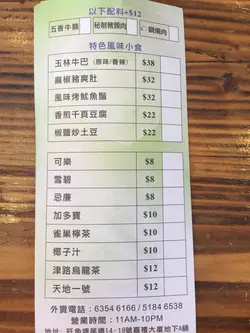 以下配料+$12
五香牛腸 秘制豬頸肉 鍋燒肉
特色風味小食
玉林牛巴(原味/香辣) $38
麻椒豬爽肚 $32
風味烤魷魚鬚 $32
香煎千頁豆腐 $22
椒鹽炒土豆 $22
可樂 $8
雪碧 $8
忌廉 $8
加多寶 $10
雀巢檸茶 $10
椰子汁 $10
津路烏龍茶 $12
天地一號 $12
外賣電話:6354 6166 / 5184 6538
營業時間:11AM-10PM
地址:旺角塘尾道14-18號嘉禮大廈地下A舖